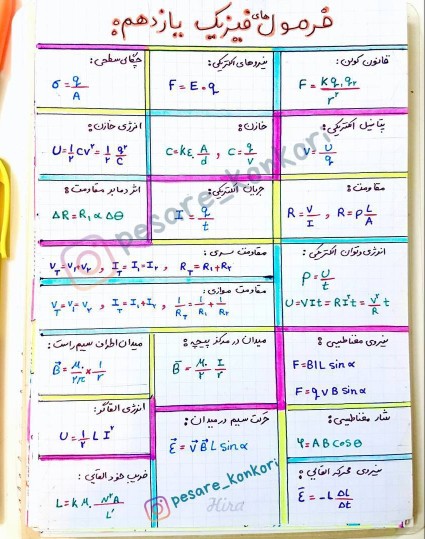 فرمول‌های فیزیک یازدهم:
قانون کولن:
F = Kq₁q₂ / r²
نیروهای الکتریکی:
F = E·q
چگالی سطحی:
σ = q / A
پتانسیل الکتریکی:
V = U / q
خازن:
C = kε₀ A / d , C = q / V
انرژی خازن:
U = ۱/۲ CV² = ۱/۲ q² / C
مقاومت:
R = V / I , R = ρ L / A
جریان الکتریکی:
I = q / t
اثر دما بر مقاومت:
ΔR = R₁ α Δθ
انرژی و توان الکتریکی:
P = U / t
U = VIt = RI²t = V² / R t
مقاومت سری:
V_T = V₁ = V₂ , I_T = I₁ = I₂ , R_T = R₁ + R₂
مقاومت موازی:
V_T = V₁ = V₂ , I_T = I₁ + I₂ , 1/R_T = 1/R₁ + 1/R₂
نیروی مغناطیسی:
F = BIL sin α
F = qvB sin α
میدان در مرکز پیچه:
B = μ₀/۲ I/r
میدان اطراف سیم راست:
B = μ₀/۲π × I/r
انرژی القاگر:
U = ۱/۲ L I²
شار مغناطیسی:
φ = AB cos θ
حرکت سیم در میدان:
ε = V B L sin α
نیروی محرکه القایی:
ε = -L ΔI / Δt
ضریب خودالقایی:
L = k μ₀ N²A / L
pesare_konkori
pesare_konkori
Hira